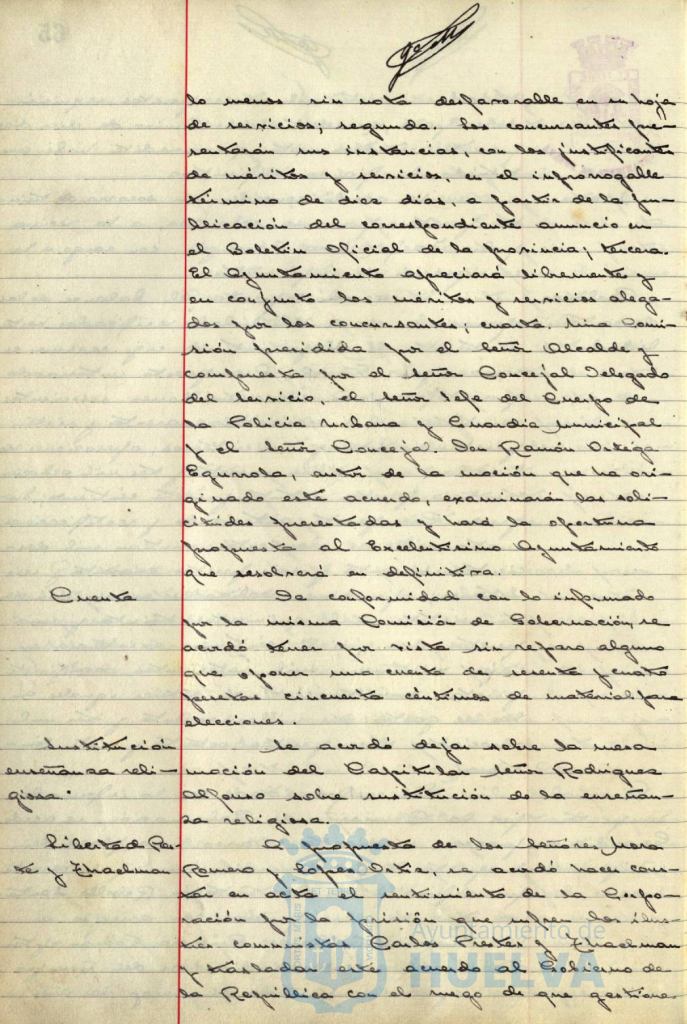 lo menos sin nota desfavorable en su hoja
de servicios; segunda. Los concursantes pre-
sentarán sus instancias, con los justificantes
de méritos y servicios, en el improrrogable
término de diez dias, a partir de la pu-
blicación del correspondiente anuncio en
el Boletin Oficial de la provincia; tercera.
El Ayuntamiento apreciará libremente y
en conjunto los méritos y servicios alega-
dos por los concursantes; cuarta. Una Comi-
sión presidida por el Señor Alcalde y
compuesta por el Señor Concejal Delegado
del servicio, el Señor Jefe del Cuerpo de
la Policia Urbana y Guardia Municipal
y el Señor Concejal Don Ramón Ortega
Egurrola, autor de la moción que ha ori-
ginado este acuerdo, examinarán las soli-
citudes presentadas y hará la oportuna
propuesta al Excelentisimo Ayuntamiento
que resolverá en definitiva.
Cuenta
De conformidad con lo informado
por la misma Comisión de Gobernación, se
acordó tener por vista sin reparo alguno
que oponer una cuenta de sesenta y cuatro
pesetas cincuenta céntimos de material para
elecciones.
Sustitución
enseñanza reli-
giosa.
Se acordó dejar sobre la mesa
moción del Capitular Señor Rodriguez
Alfonso sobre sustitución de la enseñan-
za religiosa.
Libertad Pres-
te y Thaelman
A propuesta de los Señores Mora
Romero y López Ortiz, se acordó hacer cons-
tar en acta el sentimiento de la Corpo-
ración por la prisión que sufren los ilus-
tres comunistas Carlos Prestes y Thaelman
y trasladar este acuerdo al Gobierno de
la República con el ruego de que gestione
Ayuntamiento de
HUELVA